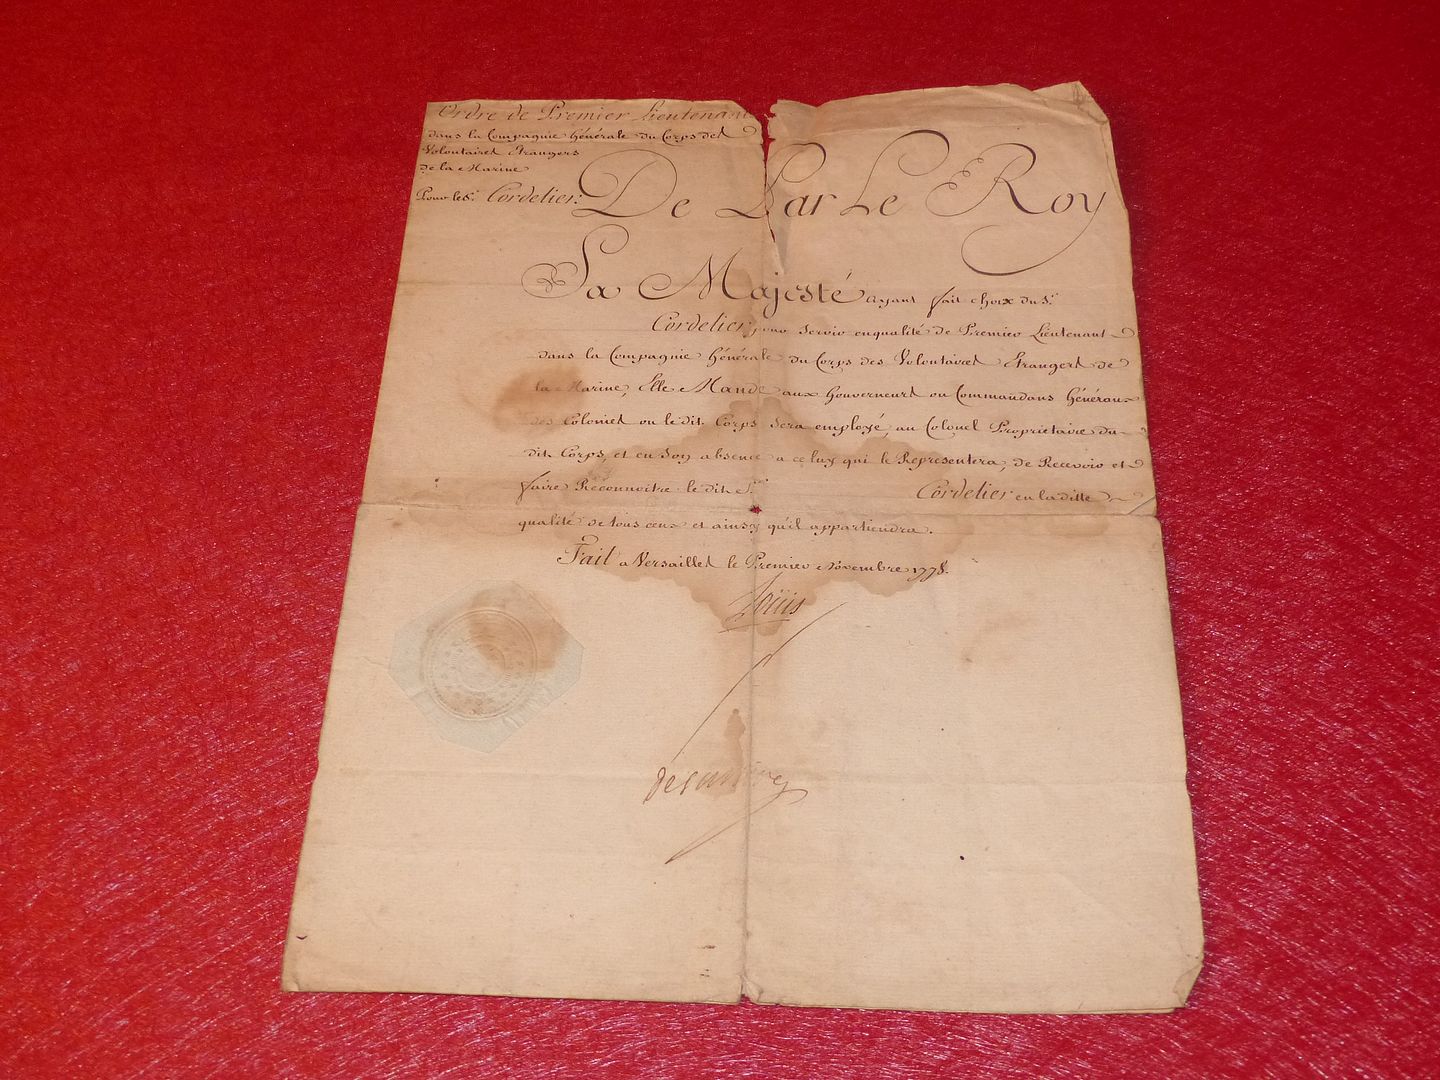 Ordre de Premier Lieutenant
dans la Compagnie Générale du Corps des
Volontaires Etrangers
de la Marine
Pour le Sr. Cordelier.
De Par Le Roy
Sa Majesté ayant fait choix du Sr.
Cordelier pour servir en qualité de Premier Lieutenant
dans la Compagnie Générale du Corps des Volontaires Etrangers de
la Marine, Elle Mande aux Gouverneurs ou Commandans Généraux
des Colonies ou le dit Corps sera employé, au Colonel Proprietaire du
dit Corps, et en Son absence a celuy qui le Representera, de Recevoir et
faire Reconnoitre le dit Sr. Cordelier en la ditte
qualité de tous ceux et ainsy qu'il appartiendra.
Fait a Versailles le Premier Novembre 1778.
Louis
De Sartine